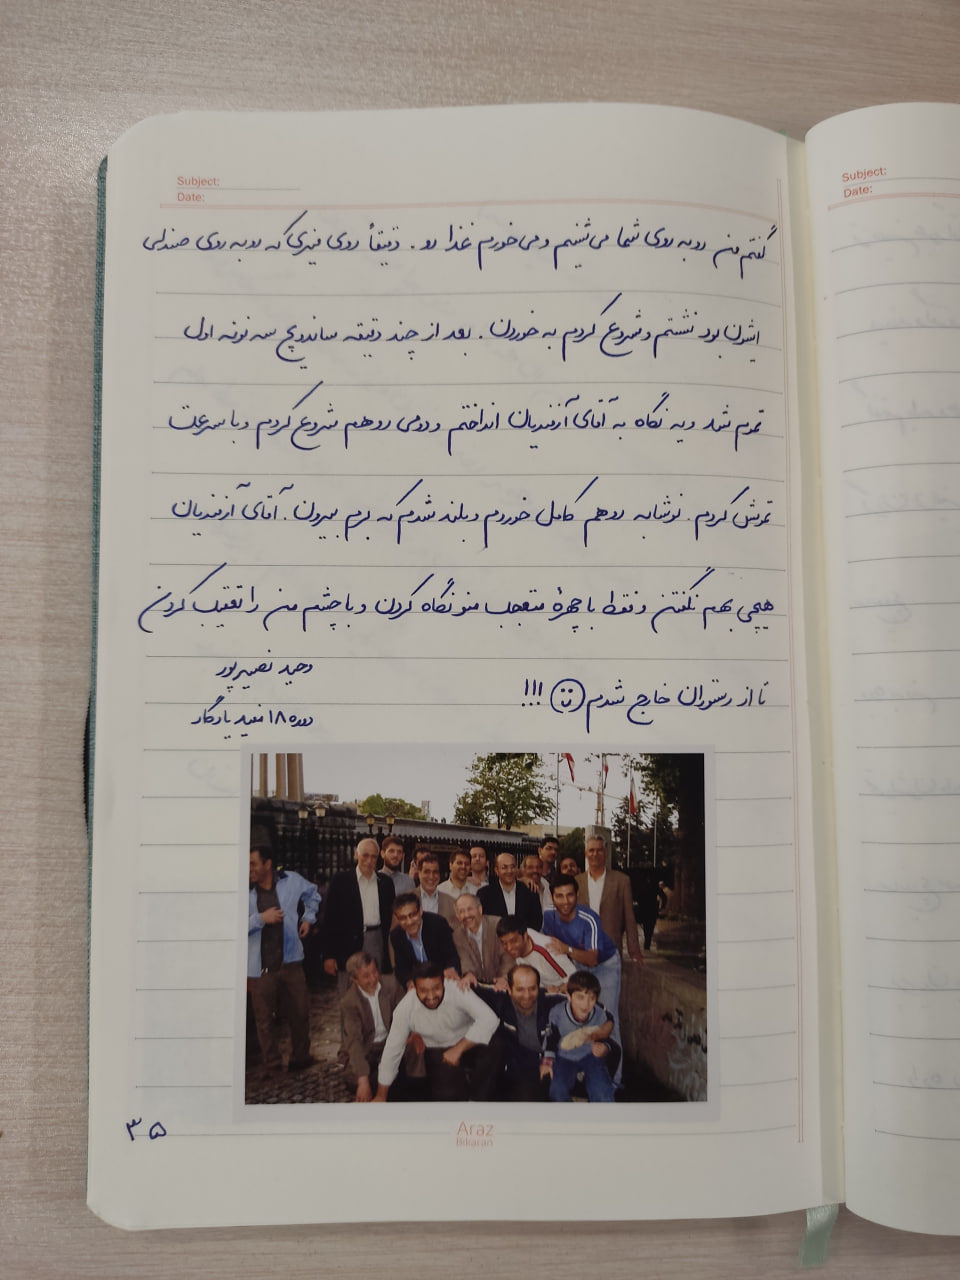 Subject:
Date:
گفتم من روبه روی شما می شینم و می خورم غذا رو. دقیقاً روی میزی که روبه روی صندلی
ایشون بود نشستم و شروع کردم به خوردن. بعد از چند دقیقه ساندویچ سه نونه اول
تموم شد و یه نگاه به آقای آزمندیان انداختم و دومی رو هم شروع کردم و با سرعت
تمومش کردم. نوشابه رو هم کامل خوردم و بلند شدم که برم بیرون. آقای آزمندیان
هیچی بهم نگفتن و فقط با چهرهٔ متعجب منو نگاه کردن و با چشم من را تعقیب کردن
تا از رستوران خارج شدم !!!
وحید نصیرپور
دوره ۱۸ مفید یادگار
۳۵
Araz
Bikaran
Subject:
Date: